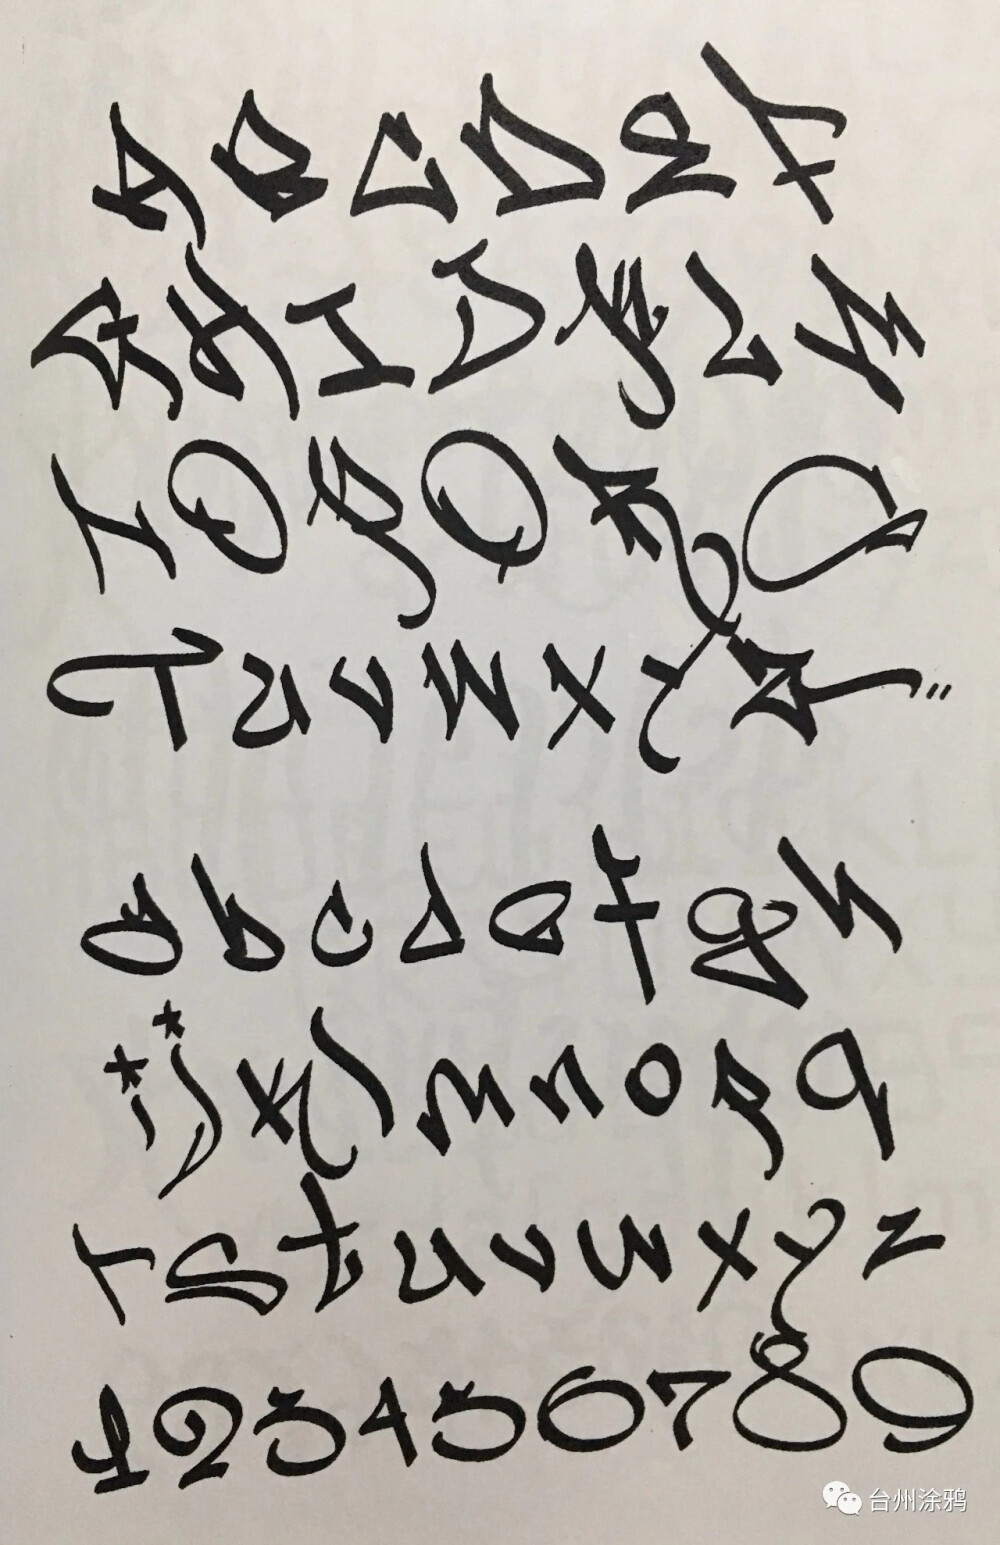 A B C D E F
G H I J K L M
N O P Q R S
T U V W X Y Z "
a b c d e f g h
i j k l m n o p q
r s t u v w x y z
1 2 3 4 5 6 7 8 9
台州涂鸦